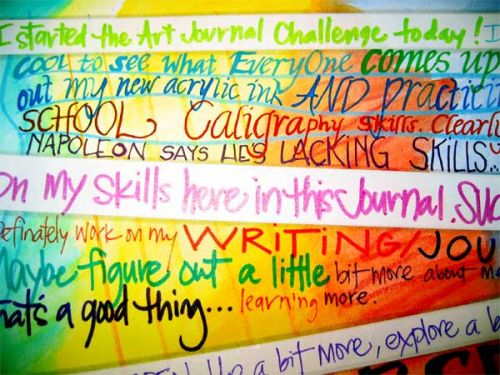 I started the Art Journal Challenge today! I
COOL to see what EveryOne comes up
out my new acrylic ink AND practici
SCHOOL Caligraphy skills. Clearly
NAPOLEON SAYS HE'S LACKING SKILLS..
On my skills here in this Journal. Suc
Definately work on my WRITING/JOU
Maybe figure out a little bit more about me
that's a good thing... learning more.
a bit more, explore a